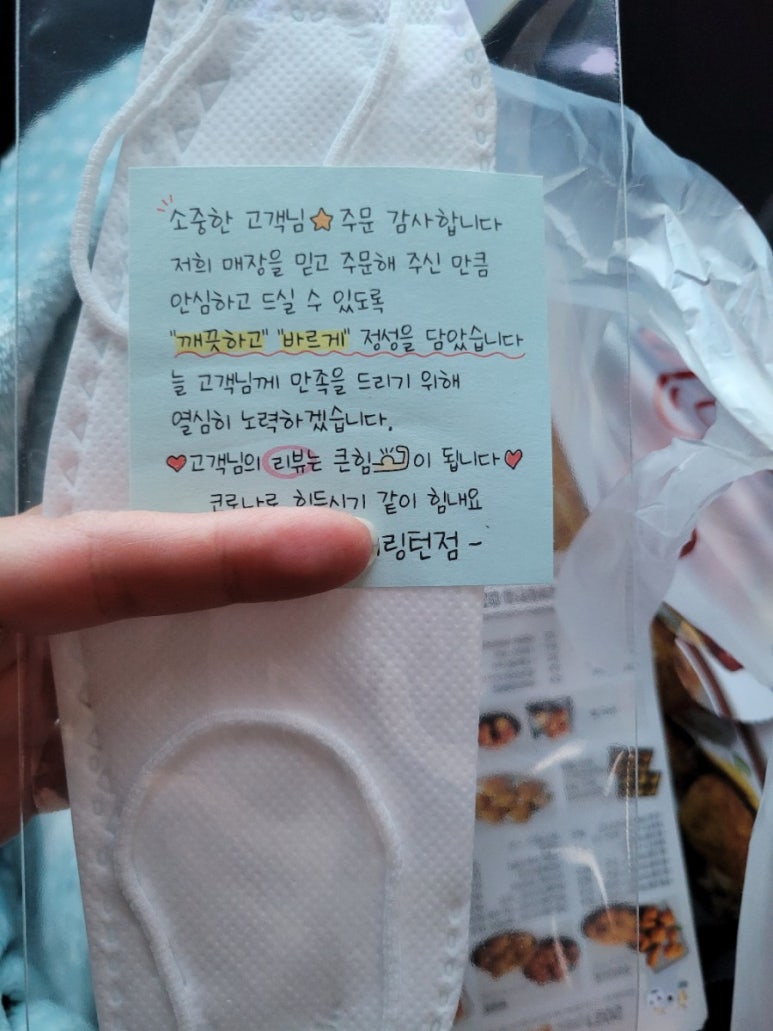 소중한 고객님 주문 감사합니다
저희 매장을 믿고 주문해 주신 만큼
안심하고 드실 수 있도록
"깨끗하고" "바르게" 정성을 담았습니다
늘 고객님께 만족을 드리기 위해
열심히 노력하겠습니다.
고객님의 리뷰는 큰힘이 됩니다
코로나로 힘드시기 같이 힘내요
링턴점~